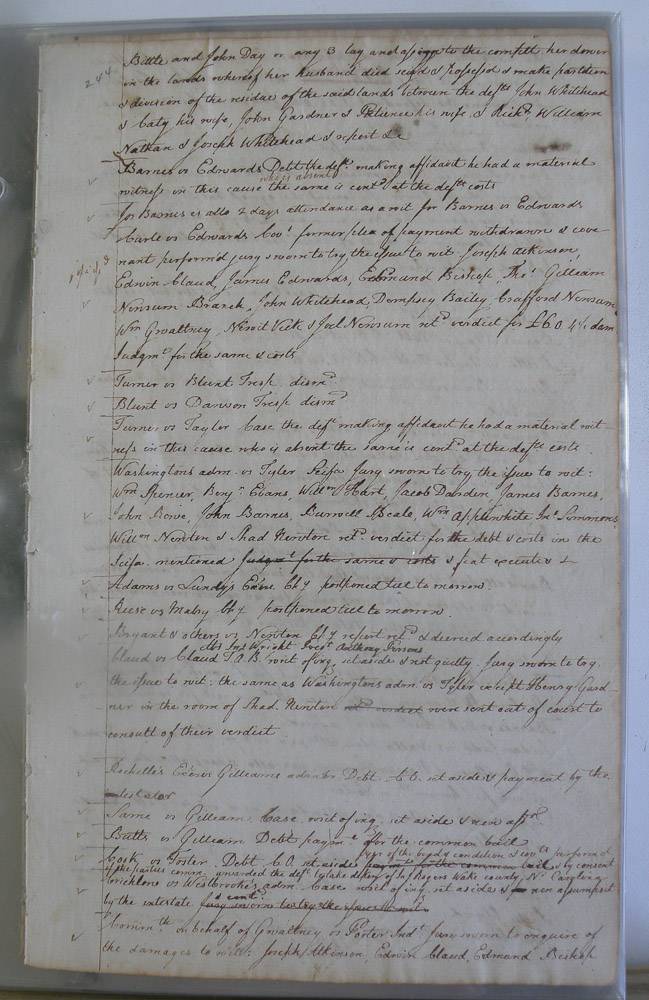 244
Bittle and John Day or any 3 lay and assign to the complt. her dower
in the lands whereof her husband died seizd & possessed & make partition
& division of the residue of the said lands between the defts John Whitehead
& Caty his wife, John Gardner & Patience his wife & Richd, William
Nathan & Joseph Whitehead & report &c
Barnes vs Edwards Debt the deft. making affidavit he had a material
who is absent
witness in this cause the same is contd at the defts costs
Jos Barnes is allo 2 days attendance as a wit for Barnes vs Edwards
Carle vs Edwards Covt former plea of payment withdrawn & cove
nant performd jury sworn to try the issue to wit Joseph Atkinson,
Edwin Claud, James Edwards, Edmund Bishop, Thos Gilliam
Newsum Branch, John Whitehead, Dempsey Bailey, Crafford Newsum
Wm Gwaltney, Newit Vick & Joel Newsum retd verdict for £60.4 dam
Judgmt for the same & costs
Turner vs Blunt Tresp. dismd
Blunt vs Dawson Tresp dismd
Turner vs Taylor Case the deft making affidavit he had a material wit-
ness in this cause who is absent the same is contd at the defts costs.
Washingtons adm. vs Tyler Scifa Jury sworn to try the issue to wit:
Wm Spencer, Benjn Evans, Willm Hart, Jacob Darden, James Barnes,
John Bowe, John Barnes, Burwell Scale, Wm Applewhite Jno Simmons
Willm Newton & Shad Newton retd verdict for the debt & costs in the
Scifa. mentioned Judgmt for the same & costs & feat executio &
Adams vs Lundys Exor Chy postponed till to morrow.
Reese vs Mabry Chy postponed till to morrow.
Bryant & others vs Newton Chy report retd & decreed accordingly
Jno Wright Anthony Persons
Claud vs Claud T.A.B. writ of inq. set aside & not guilty. Jury sworn to try
the issue to wit: the same as Washingtons adm. vs Tyler except Henry Gard-
ner in the room of Shad. Newton retd verdict were sent out of court to
consult of their verdict
Rochelle's Exor vs Gilliams admr Debt. C.O. set aside & payment by the
testator
Same vs Gilliam Case. writ of inq. set aside & non assn
Butts vs Gilliam Debt paymt for the common bail
Cook vs Foster. Debt C.O. set aside payment for the common bail & by consent
of the parties comn. awarded the deft to take depo of Rogers Wake county, No Carolina
Crichlow vs Westbrooks adm. Case writ of inq. set aside & non assumpsit
by the intestate & contd jury sworn to try the issue to wit
Commth on behalf of Gwaltney vs Porter Indt Jury sworn to enquire of
the damages to wit: Joseph Atkinson, Edwin Claud, Edmund Bishop